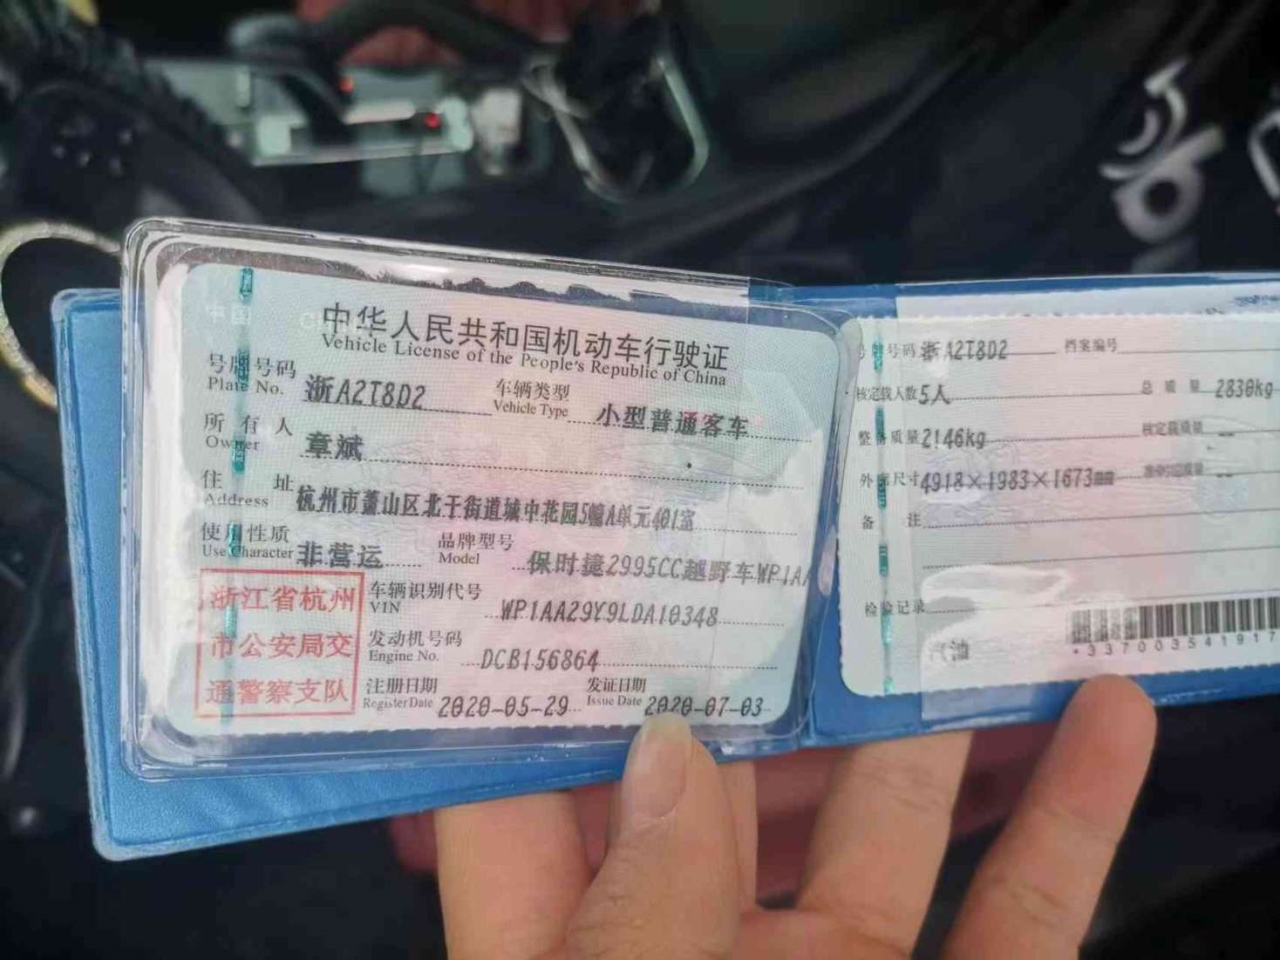 中华人民共和国机动车行驶证
Vehicle License of the People's Republic of China
号牌号码 浙A2T8D2 车辆类型 小型普通客车
Plate No. Vehicle Type
所有人 章斌
Owner
住址 杭州市萧山区北干街道城中花园5幢A单元401室
Address
使用性质 非营运 品牌型号 保时捷2995CC越野车WP1AA
Use Character Model
浙江省杭州
市公安局交
通警察支队
车辆识别代号 WP1AA29Y9LDA10348
VIN
发动机号码 DCB156864
Engine No.
注册日期 2020-05-29 发证日期 2020-07-03
Register Date Issue Date
号牌号码 浙A2T8D2 档案编号
核定载人数 5人 总质量 2830kg
整备质量 2146kg 核定载质量 --
外廓尺寸 4918×1983×1673mm --
备注
检验记录
汽油
*337003541917